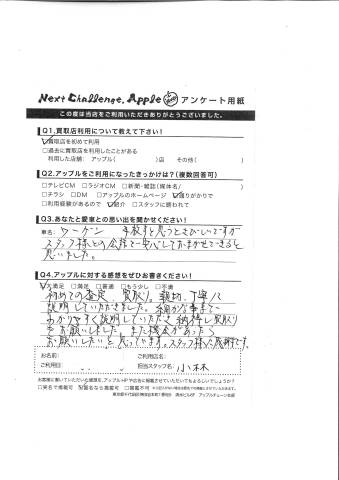 Next Challenge. Apple アンケート用紙
この度は当店をご利用いただきありがとうございました。
Q1.買取店利用について教えて下さい!
☑買取店を初めて利用
□過去に買取店を利用したことがある
利用した店舗: アップル( )店 その他( )
Q2.アップルをご利用になったきっかけは?(複数回答可)
□テレビCM □ラジオCM □新聞・雑誌(媒体名/ )
□チラシ □DM □アップルのホームページ ☑通りがかりで
□利用経験があるので ☑紹介 □スタッフに誘われて
Q3.あなたと愛車との思い出を聞かせください!
車名: ワーゲン 手放すと思うとさびしいですが
スタッフ様との会話で安心しておまかせできると
思いました。
Q4.アップルに対する感想をぜひお書きください!
☑大満足 □満足 □普通 □もう少し □不満
初めての査定、買取り。親切、丁寧に
説明していただきました。細かな事まで
わかりやすく説明していただき 納得し買取り
をお願いしました。また機会があったら
お願いしたいと思っています。スタッフ様に感謝です。
お名前: ご利用店名:
ご利用日 担当スタッフ名: 小林
お客様に書いていただいた感想を、アップルHPや店舗に掲載させていただいてもよろしいでしょうか?
□実名で掲載可 ☑匿名なら掲載可 □掲載不可